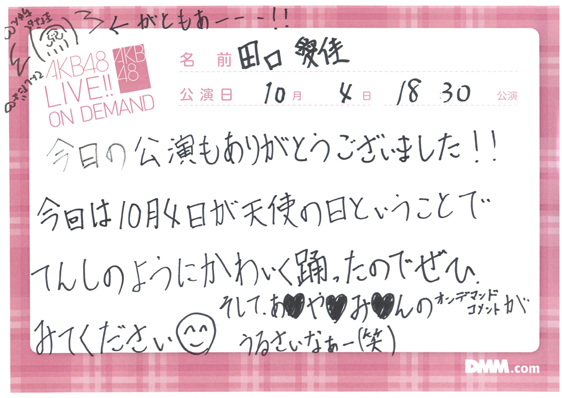 ←がともあーーー!!
AKB48
LIVE!!
ON DEMAND
AKB
48
名前 田口愛佳
公演日 10月 4日 18 30 公演
今日の公演もありがとうございました!!
今回は10月4日が天使の日ということで
てんしのようにかわいく踊ったのでぜひ
みてください
そして、あ♥や♥み♥んのオンデマンドコメントが
うるさいなぁー(笑)
DMM.com